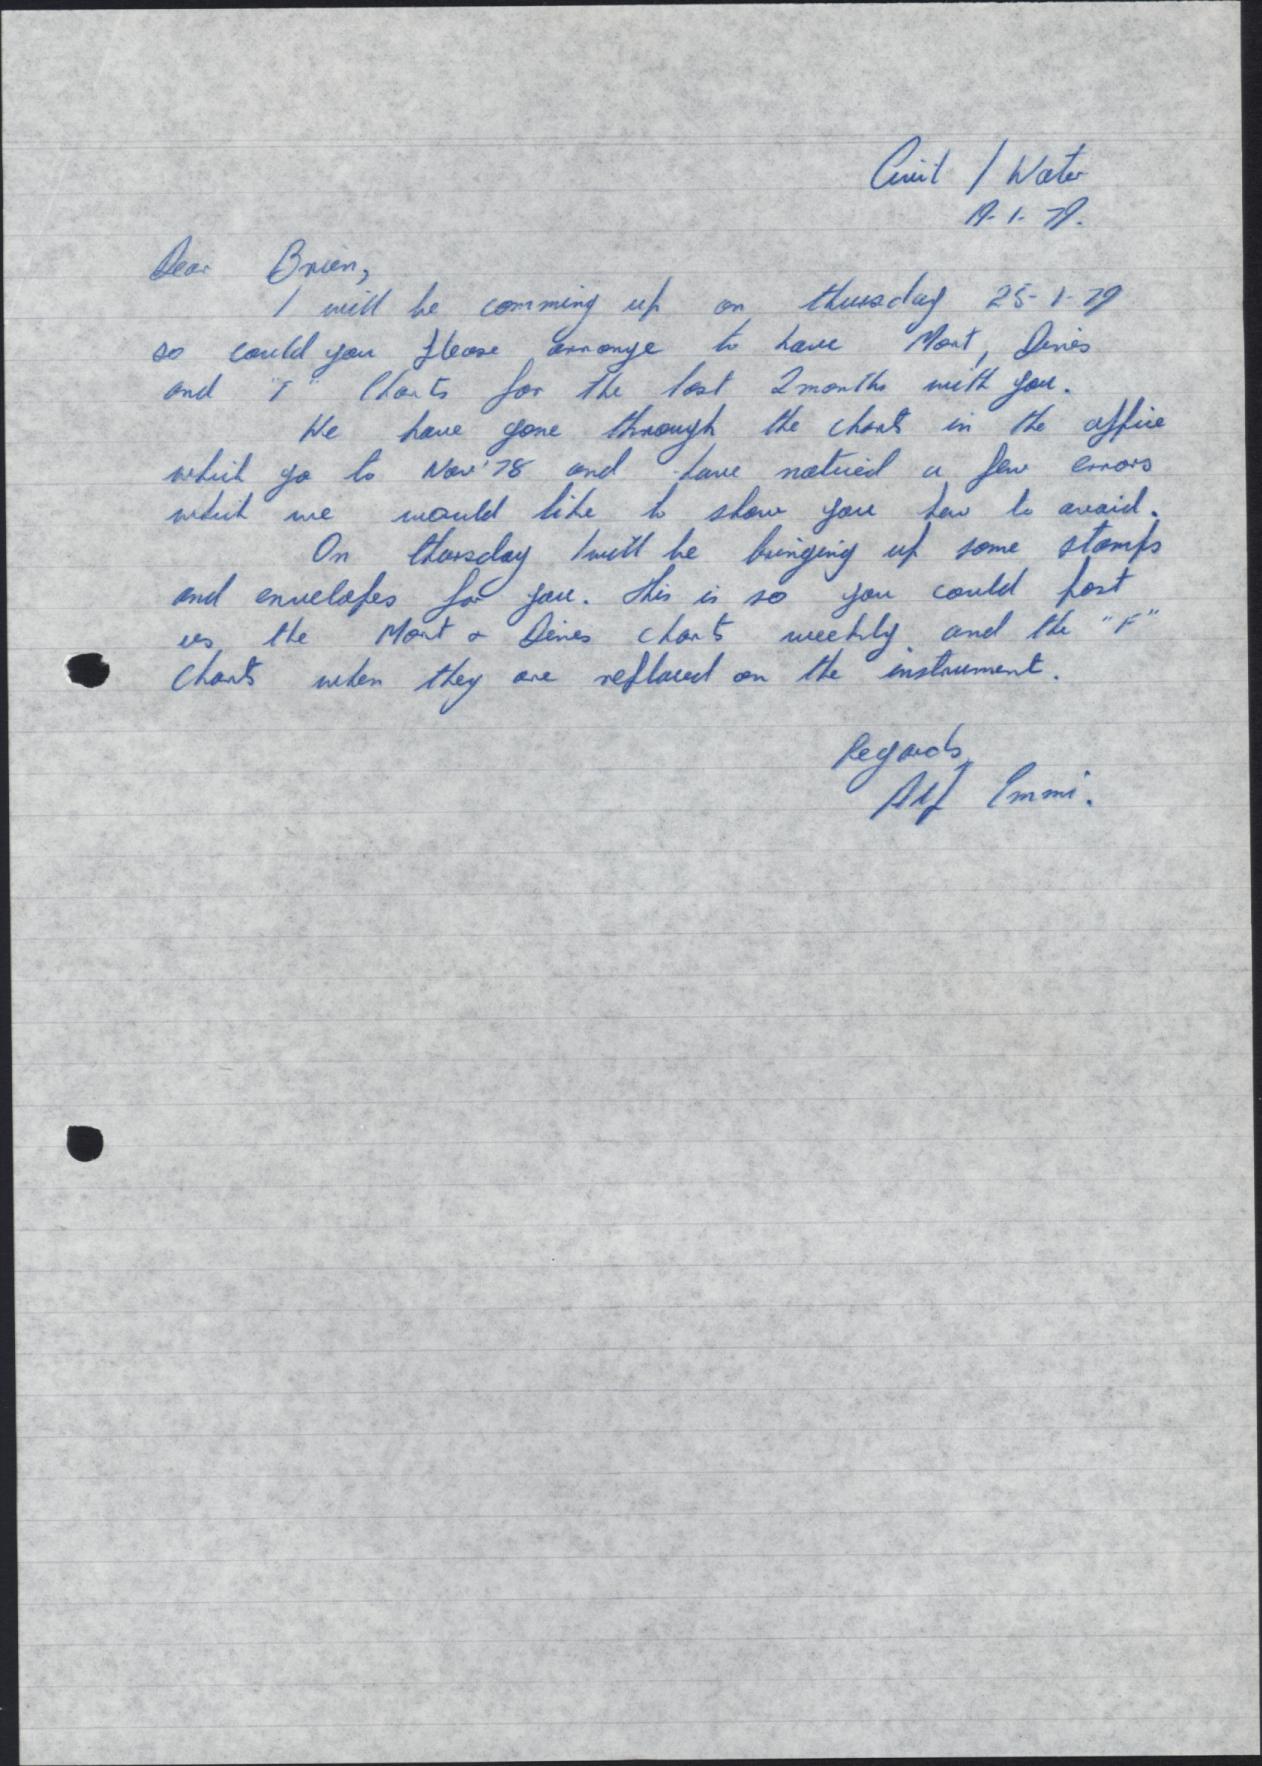 Civil / Water
19-1-79.
Dear Brien,
I will be comming up on thursday 25-1-79
so could you please arrange to have Mort, Dines
and "F" Charts for the last 2 months with you.
We have gone through the charts in the office
which go to Nov '78 and have noticed a few errors
which we would like to show you how to avoid.
On thursday I will be bringing up some stamps
and envelopes for you. This is so you could post
us the Mort & Dines charts weekly and the "F"
Charts when they are replaced on the instrument.
Regards,
Alf Emmi.